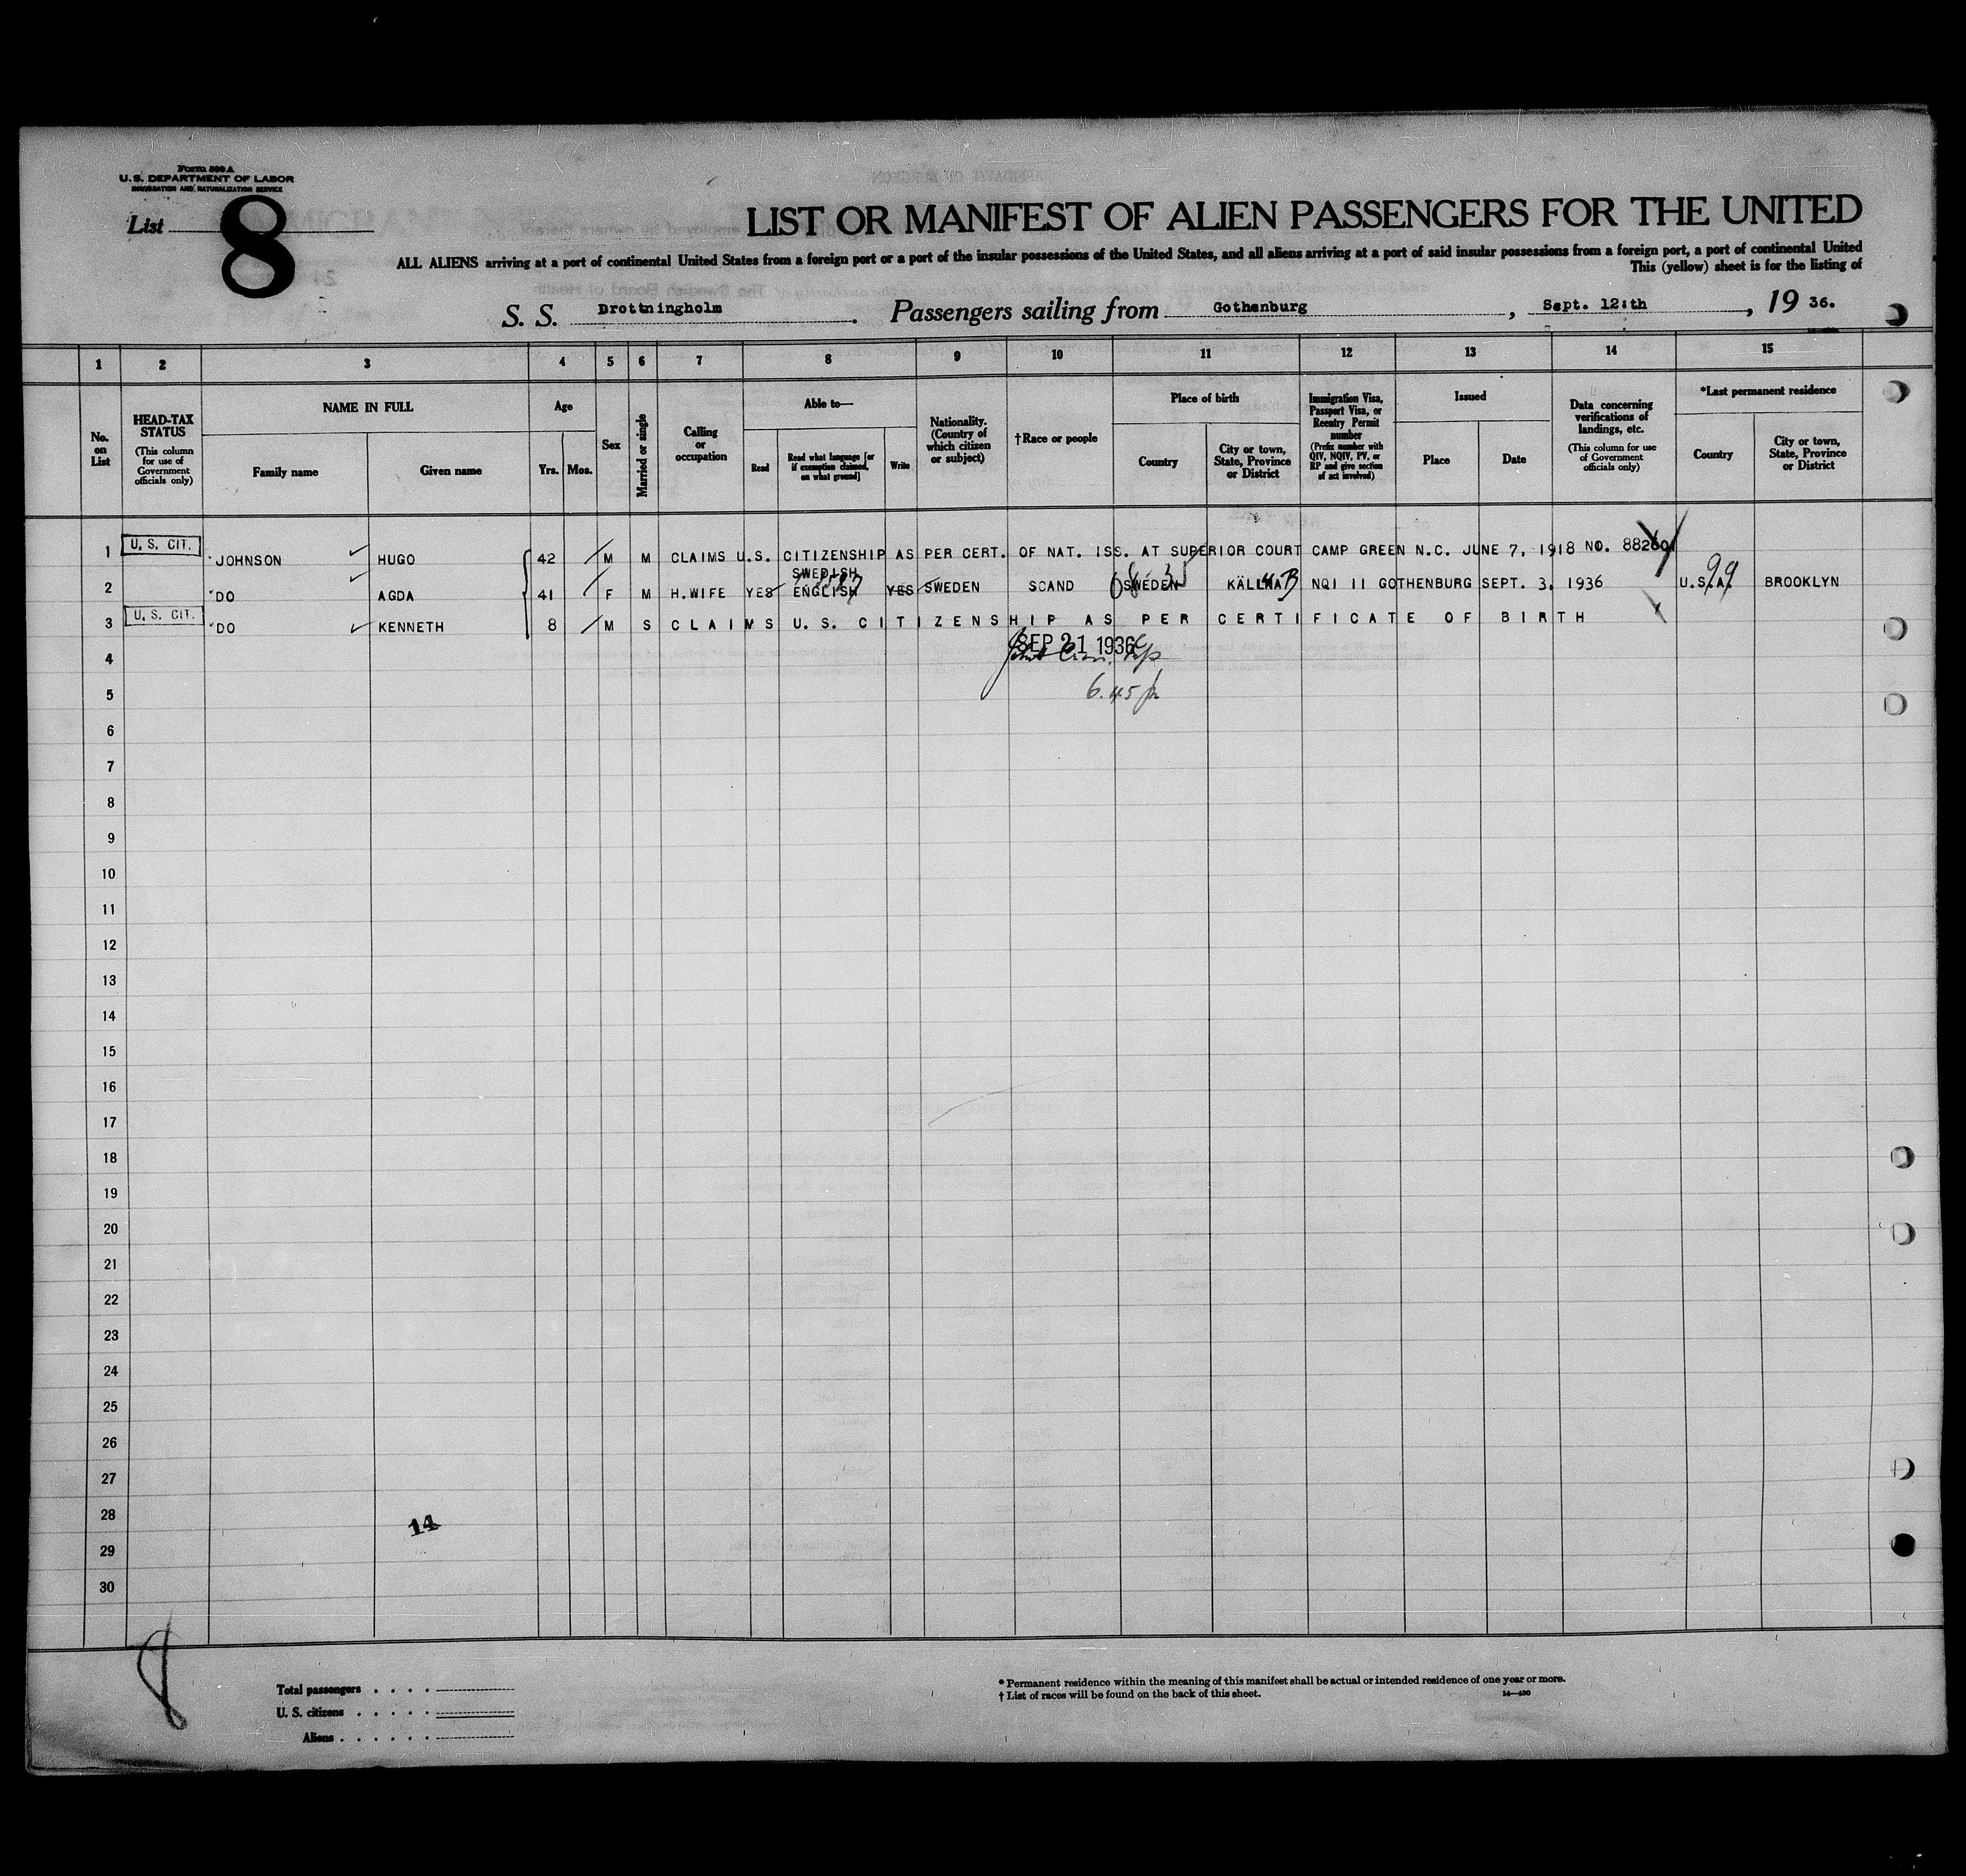 Form 500 A
U. S. DEPARTMENT OF LABOR
IMMIGRATION AND NATURALIZATION SERVICE
List 8
LIST OR MANIFEST OF ALIEN PASSENGERS FOR THE UNITED
ALL ALIENS arriving at a port of continental United States from a foreign port or a port of the insular possessions of the United States, and all aliens arriving at a port of said insular possessions from a foreign port, a port of continental United
This (yellow) sheet is for the listing of
S. S. Drottningholm. Passengers sailing from Gothenburg, Sept. 12:th, 19 36.
1 2 3 4 5 6 7 8 9 10 11 12 13 14 15
No. on List
HEAD-TAX STATUS
(This column for use of Government officials only)
NAME IN FULL
Family name
Given name
Age
Yrs. Mos.
Sex
Married or single
Calling or occupation
Able to—
Read
Read what language [or if exemption claimed, on what ground]
Write
Nationality. (Country of which citizen or subject)
†Race or people
Place of birth
Country
City or town, State, Province or District
Immigration Visa, Passport Visa, or Reentry Permit number
(Prefix number with QIV, NQIV, PV, or RP and give section of act involved)
Issued
Place
Date
Data concerning verifications of landings, etc.
(This column for use of Government officials only)
*Last permanent residence
Country
City or town, State, Province or District
1 U. S. CIT. JOHNSON HUGO 42 M M CLAIMS U.S. CITIZENSHIP AS PER CERT. OF NAT. ISS. AT SUPERIOR COURT CAMP GREEN N.C. JUNE 7, 1918 NO.
SWEDISH
2 DO AGDA 41 F M H.WIFE YES ENGLISH YES SWEDEN SCAND SWEDEN NQI 11 GOTHENBURG SEPT. 3, 1936 U.S.A. 99 BROOKLYN
3 U. S. CIT. DO KENNETH 8 M S CLAIMS U.S. CITIZENSHIP AS PER CERTIFICATE OF BIRTH
SEP 21 1936
4
6.45 p
5
6
7
8
9
10
11
12
13
14
15
16
17
18
19
20
21
22
23
24
25
26
27
28
14
29
30
8
Total passengers . . . .
U. S. citizens . . . . .
Aliens . . . . . .
* Permanent residence within the meaning of this manifest shall be actual or intended residence of one year or more.
† List of races will be found on the back of this sheet.
14—430